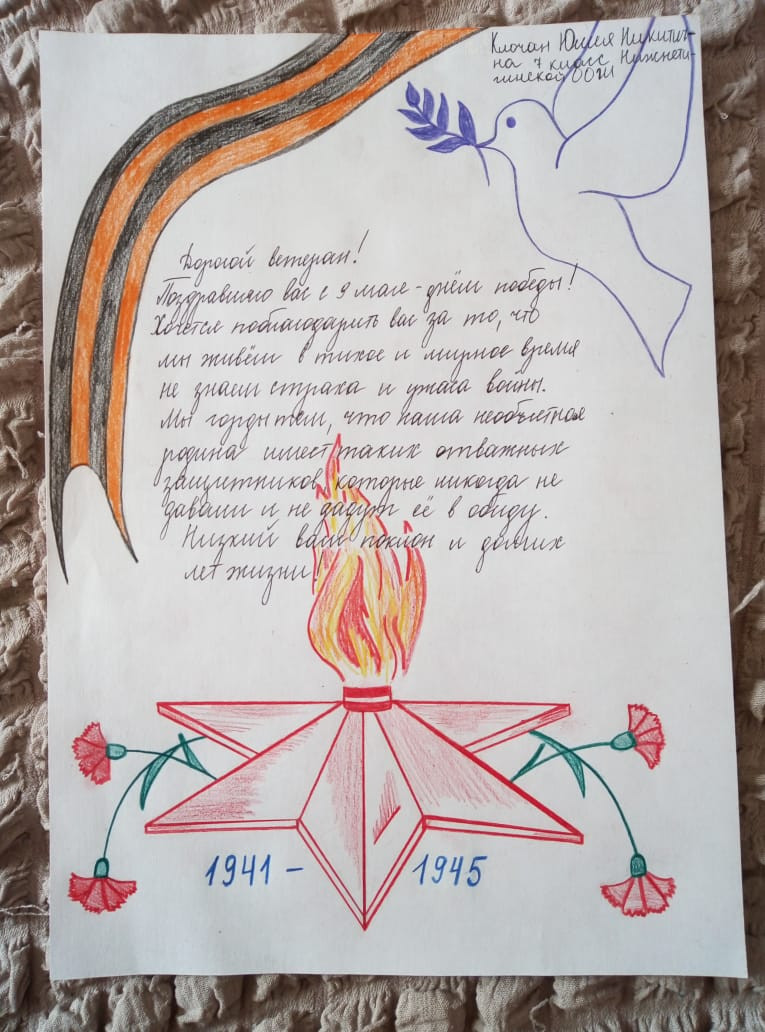 Клочан Юлия Никитич-
на 7 класс Нижнети-
гинской ООШ
Дорогой ветеран!
Поздравляю вас с 9 мая - днём победы!
Хочется поблагодарить вас за то, что
мы живём в тихое и мирное время
не знаем страха и ужаса войны.
Мы горды тем, что наша необъятная
родина имеет таких отважных
защитников, которые никогда не
давали и не дадут её в обиду.
Низкий вам поклон и долгих
лет жизни!
1941 - 1945